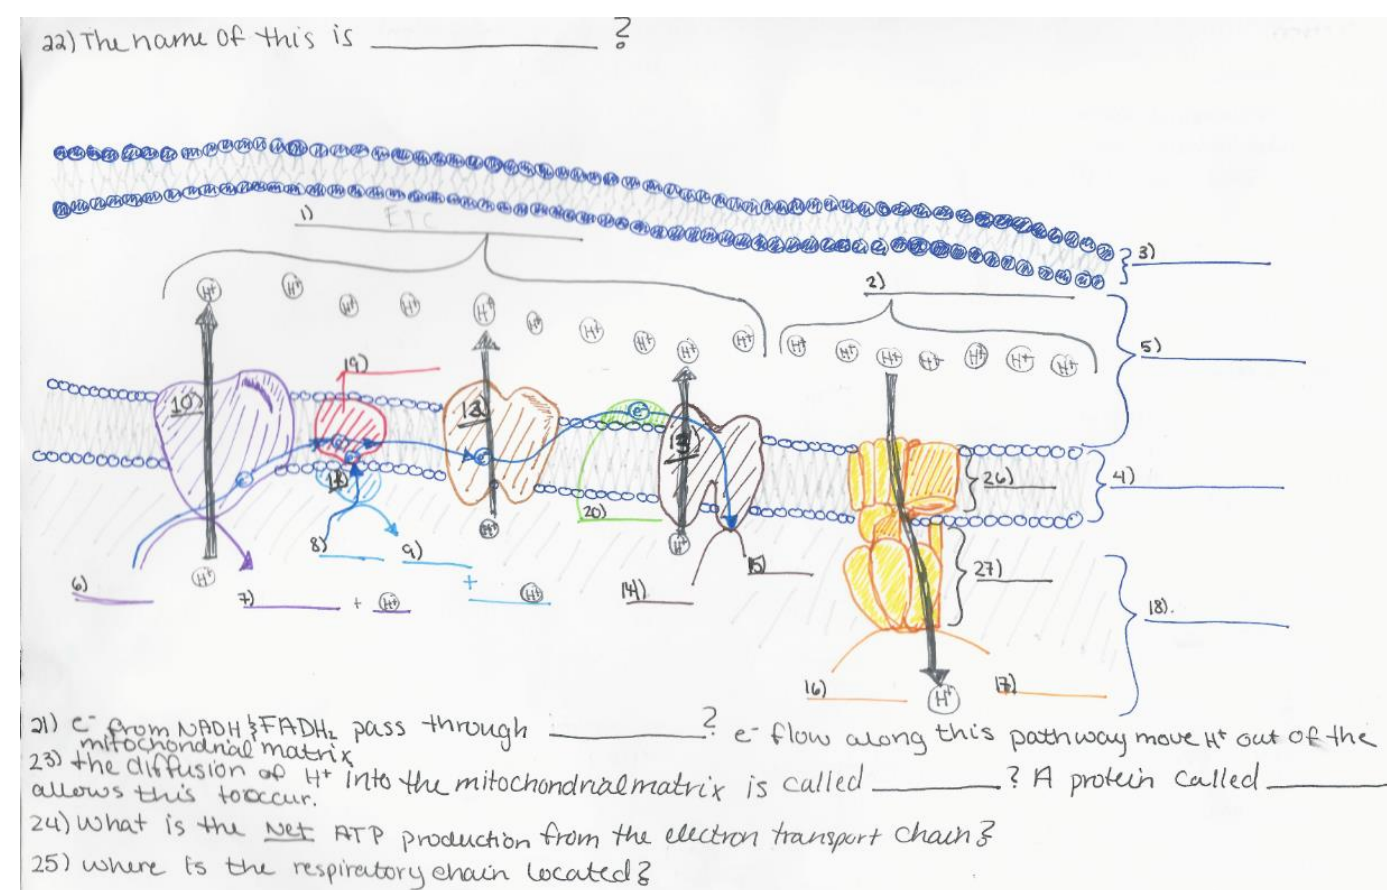 22) The name of this is ____________ ?
1) ETC
3)
2)
H+ H+ H+ H+ H+ H+ H+ H+ H+ H+ H+ H+ H+ H+ H+ H+ H+
5)
19)
10)
12)
e-
13)
e- e- e- e-
11)
26)
4)
20)
8)
9)
H+ H+ H+
27)
6)
7) + H+
+ H+
14)
15)
18).
16)
H+
17)
21) e- from NADH & FADH2 pass through ________? e- flow along this pathway move H+ out of the
mitochondrial matrix
23) the diffusion of H+ into the mitochondrial matrix is called ________? A protein called ________
allows this to occur.
24) What is the Net ATP production from the electron transport chain?
25) where is the respiratory chain located?